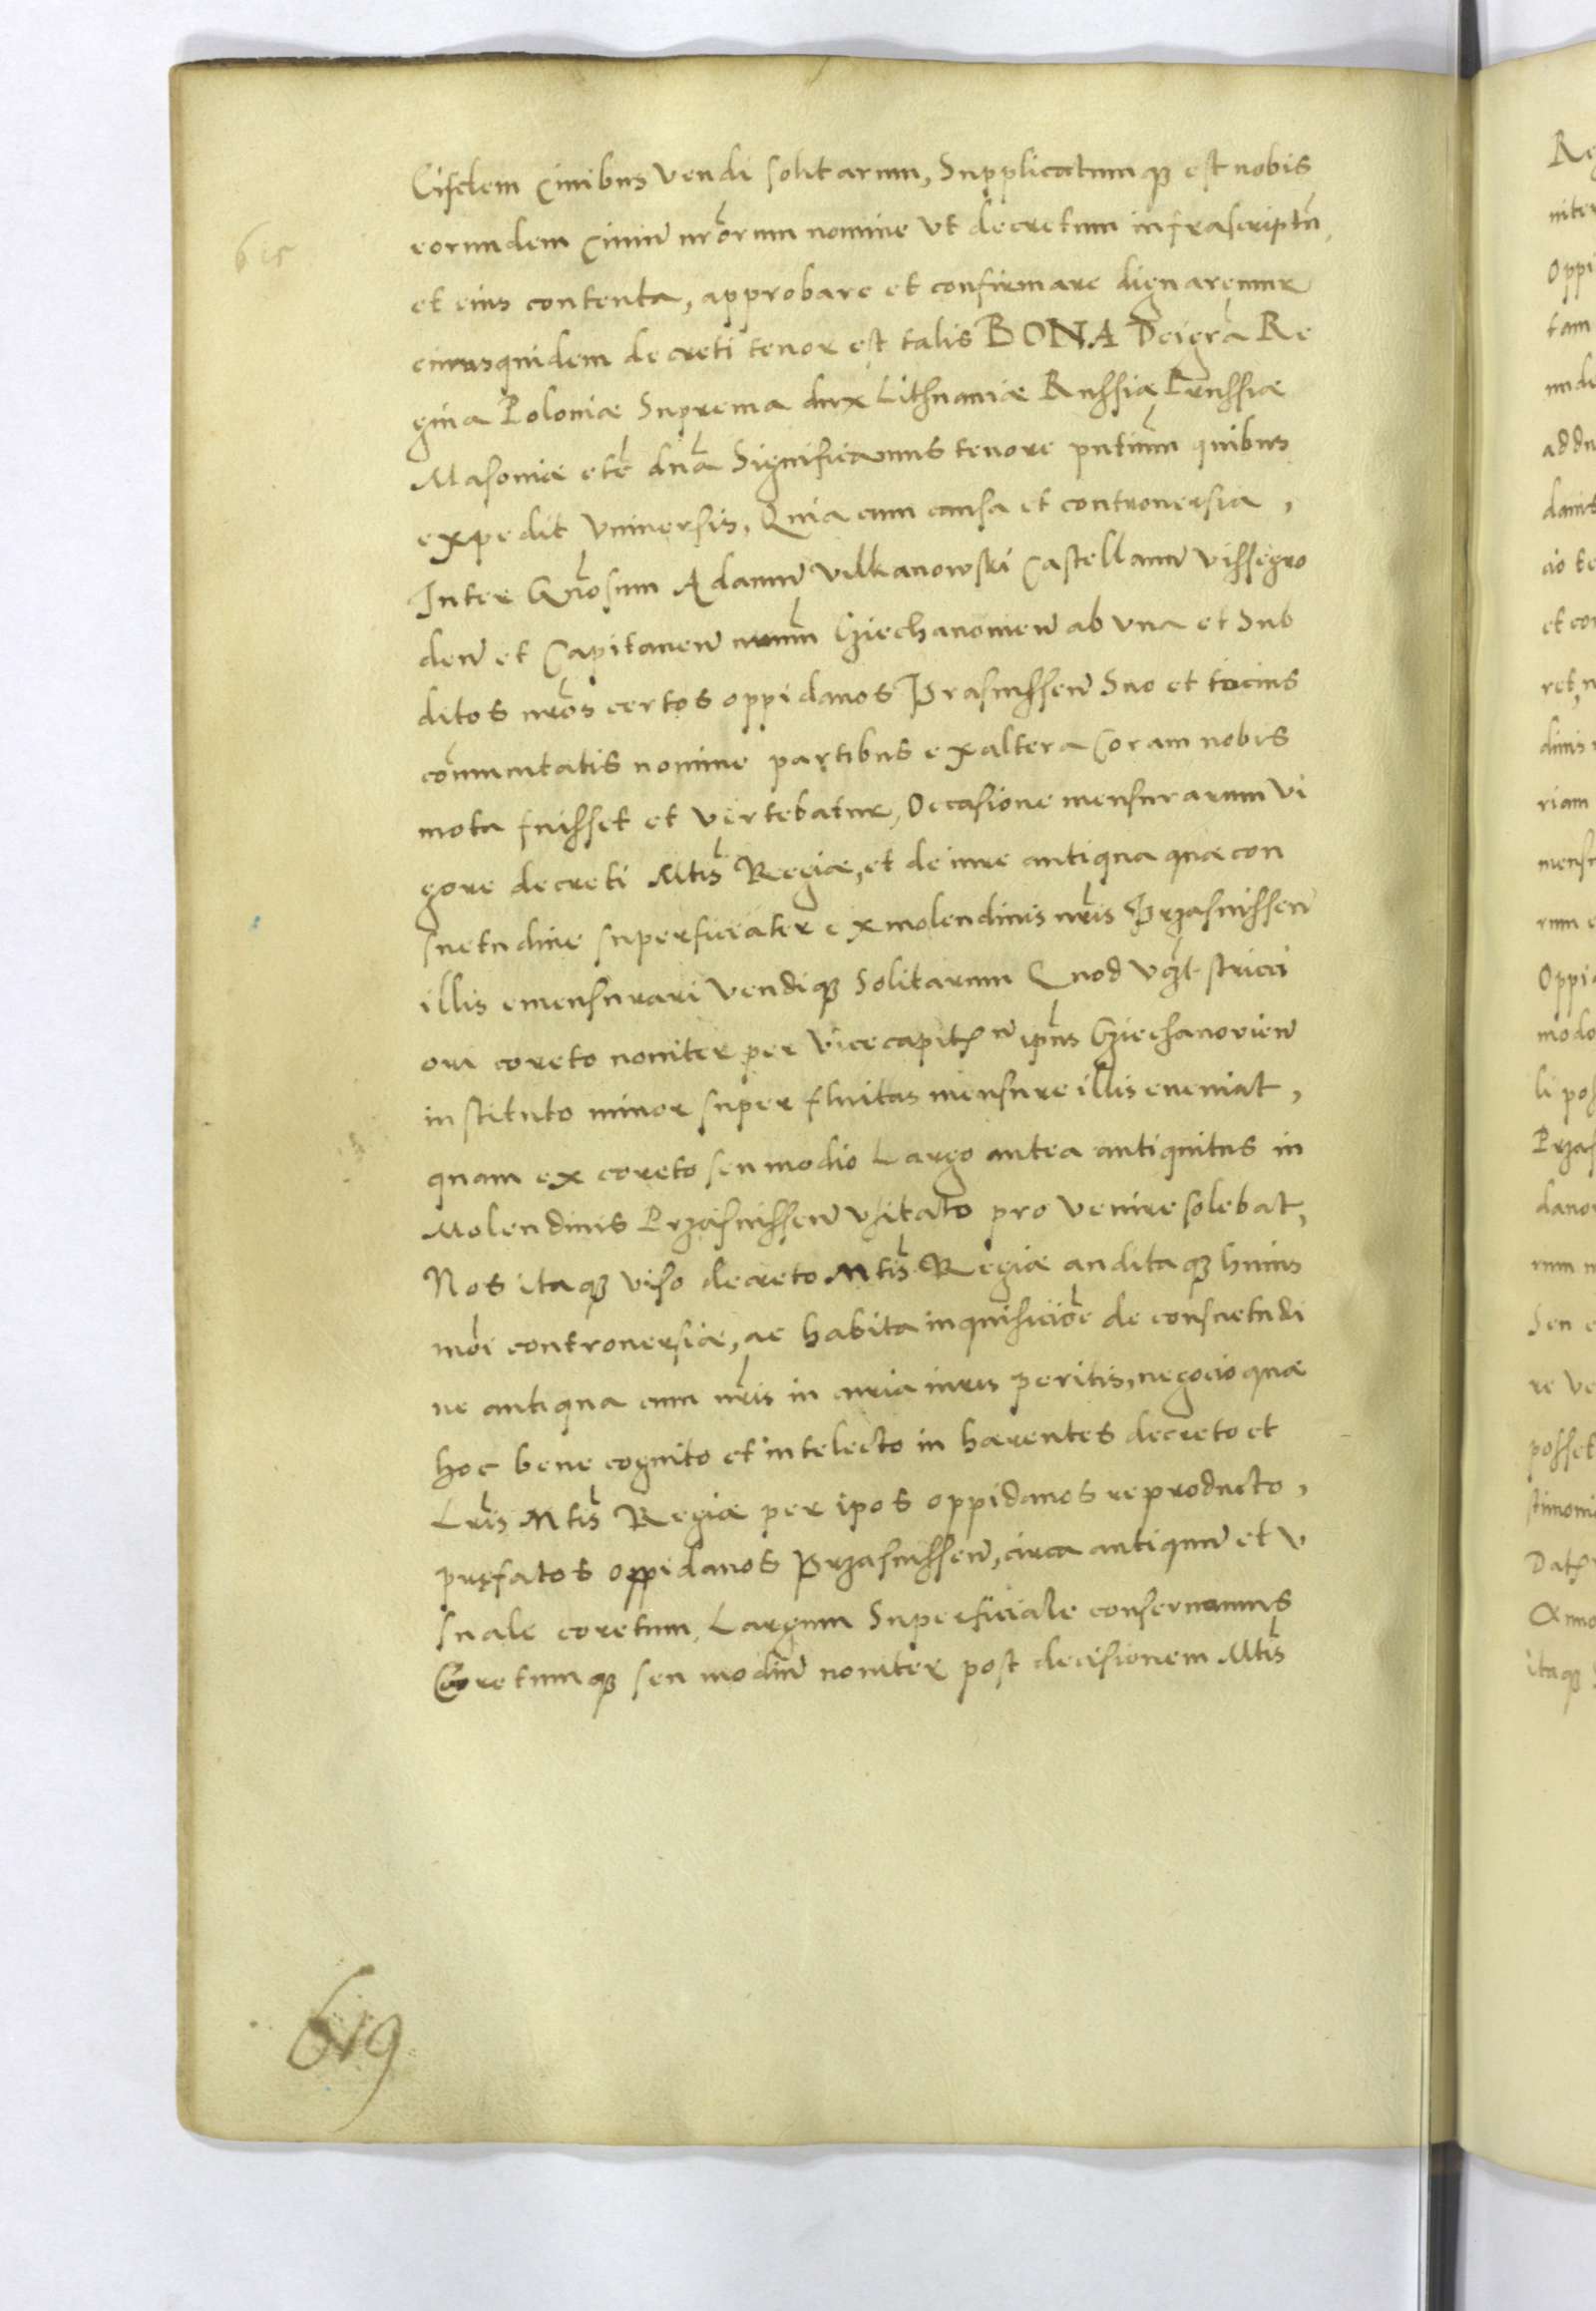 Eisdem Ciuibus Vendi solitarum, Supplicatumqꝫ est nobis
eorundem Ciuiū nr̃orum nomine Vt decretum infrascriptũ
et eius contenta, approbare et confirmare dignaremur
cuiusquidem decreti tenor est talis BONA Deigr̃a Re
gina Poloniæ Suprema dux Lithuaniæ Russiæ Prussiæ
Masouiæ etc̃ dnã Significamus tenore pñtium quibus
expedit Vniuersis, Quia cum causa et controuersia,
Inter Gñosum Adamū Vilkanowski Castellanū Vissegro
deñ et Capitaneū nr̃um Cziechanouieñ ab vna et Sub
ditos nr̃os certos oppidanos Prasnisseñ Suo et tocius
com̃unitatis nomine partibus exaltera Coram nobis
mota fuisset et Vertebatur, Occasione mensurarum Vi
gore decreti Mtis̃ Regiæ, et de iure antiqua quæ con
suetudine superficiater ex molendinis nr̃is Przasnisseñ
illis emensurari Vendiqꝫ Solitarum Quod Vꝫ stricti
ori coreto nouiter per Vicecapitꝫ ip̃us Cziechanovieñ
instituto minor superfluitas mensure illis eveniat,
quam ex coreto seu modio Largo antea antiquitus in
Molendinis Przasnisseñ Vsitato pro venire solebat,
Nos itaqꝫ viso decreto Mtis̃ Regiæ auditaqꝫ huius
mõi controuersiæ, ac habita inquisiciõe de consuetudi
ne antiqua cum nr̃is in curia iuris peritis, negocio quæ
hoc bene cognito et intelecto in hærentes decreto et
Lr̃is Mtis̃ Regiæ per ipos oppidanos reproducto,
pręfatos oppidanos Przasnisseñ, circa antiquū et v
suale coretum Largum Superficiale conseruamus
Coretumqꝫ seu modiū nouiter post decisionem Mtis̃
619